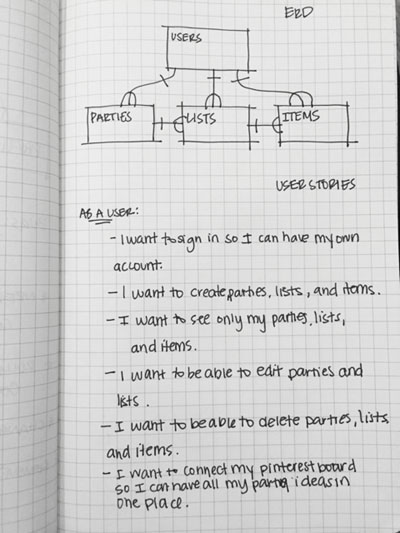 ERD
USERS
PARTIES
LISTS
ITEMS
USER STORIES
AS A USER:
- I want to sign in so I can have my own
account.
- I want to create parties, lists, and items.
- I want to see only my parties, lists,
and items.
- I want to be able to edit parties and
lists.
- I want to be able to delete parties, lists
and items.
- I want to connect my pinterest board
so I can have all my party ideas in
one place.